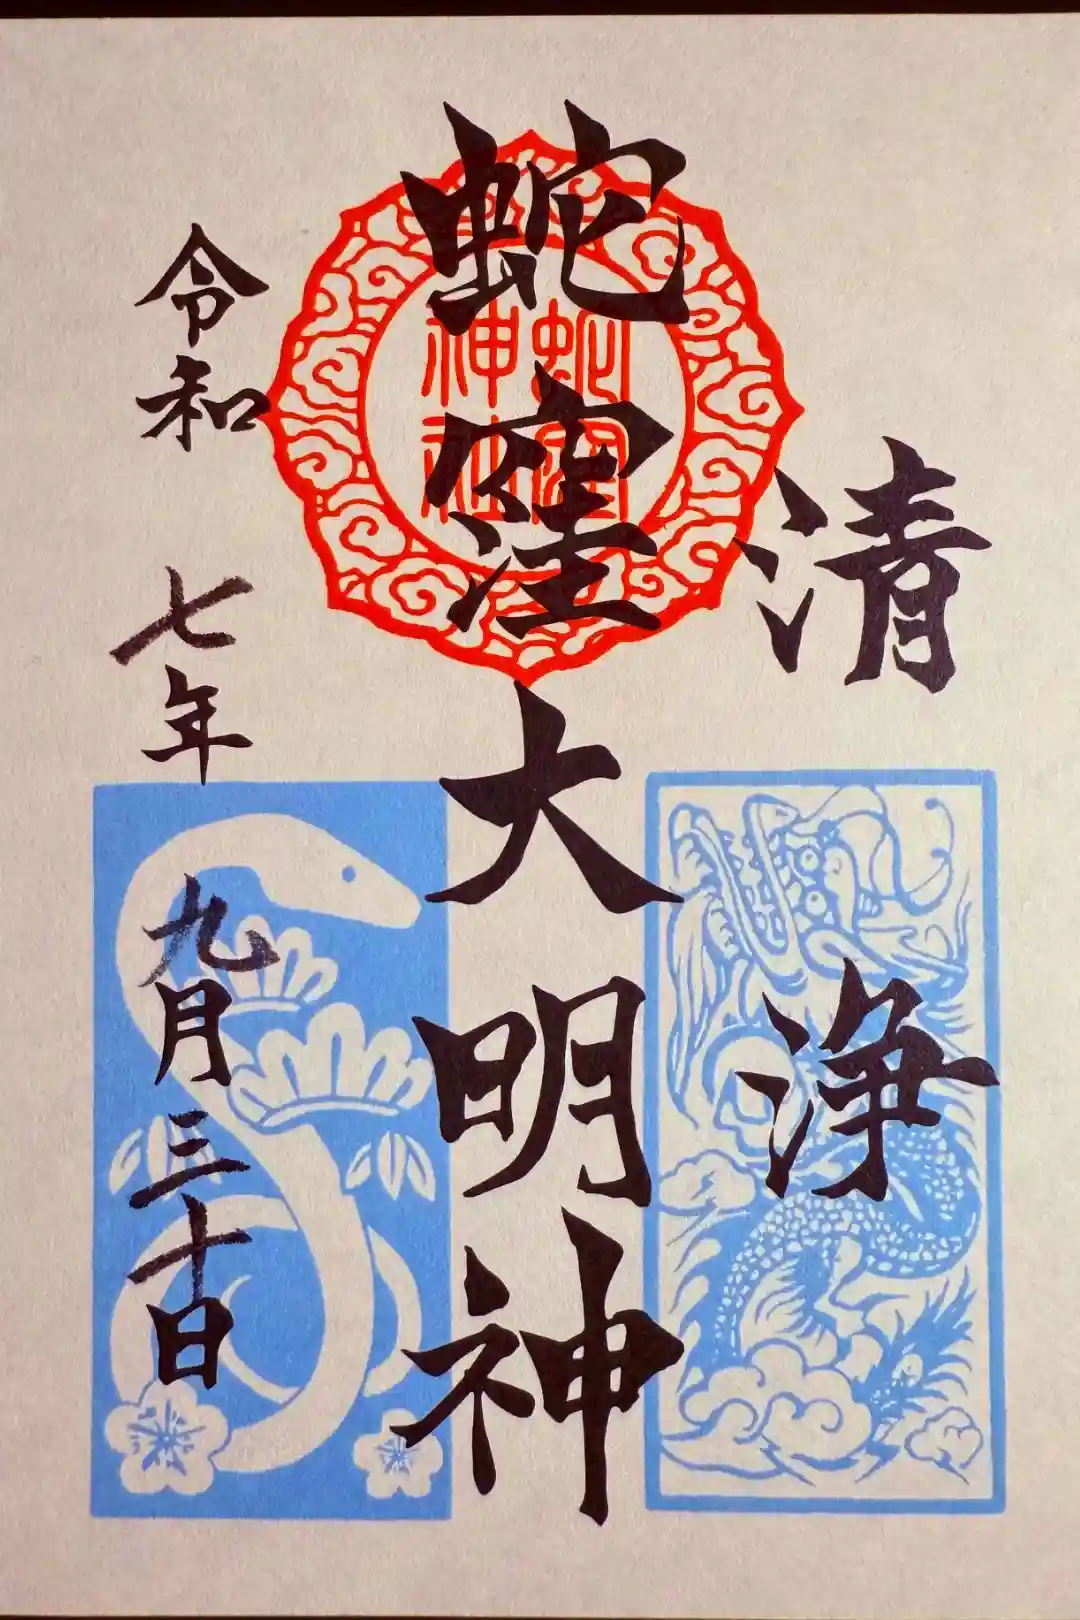 清浄
蛇窪大明神
蛇窪
神社
令和七年九月三十日